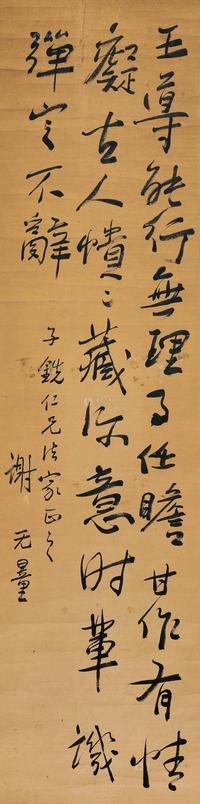 王尊能行無理事任瞻甘作有情
癡古人憒憒藏深意時輩譏
彈定不辭
子銑仁兄法家正之
謝无量